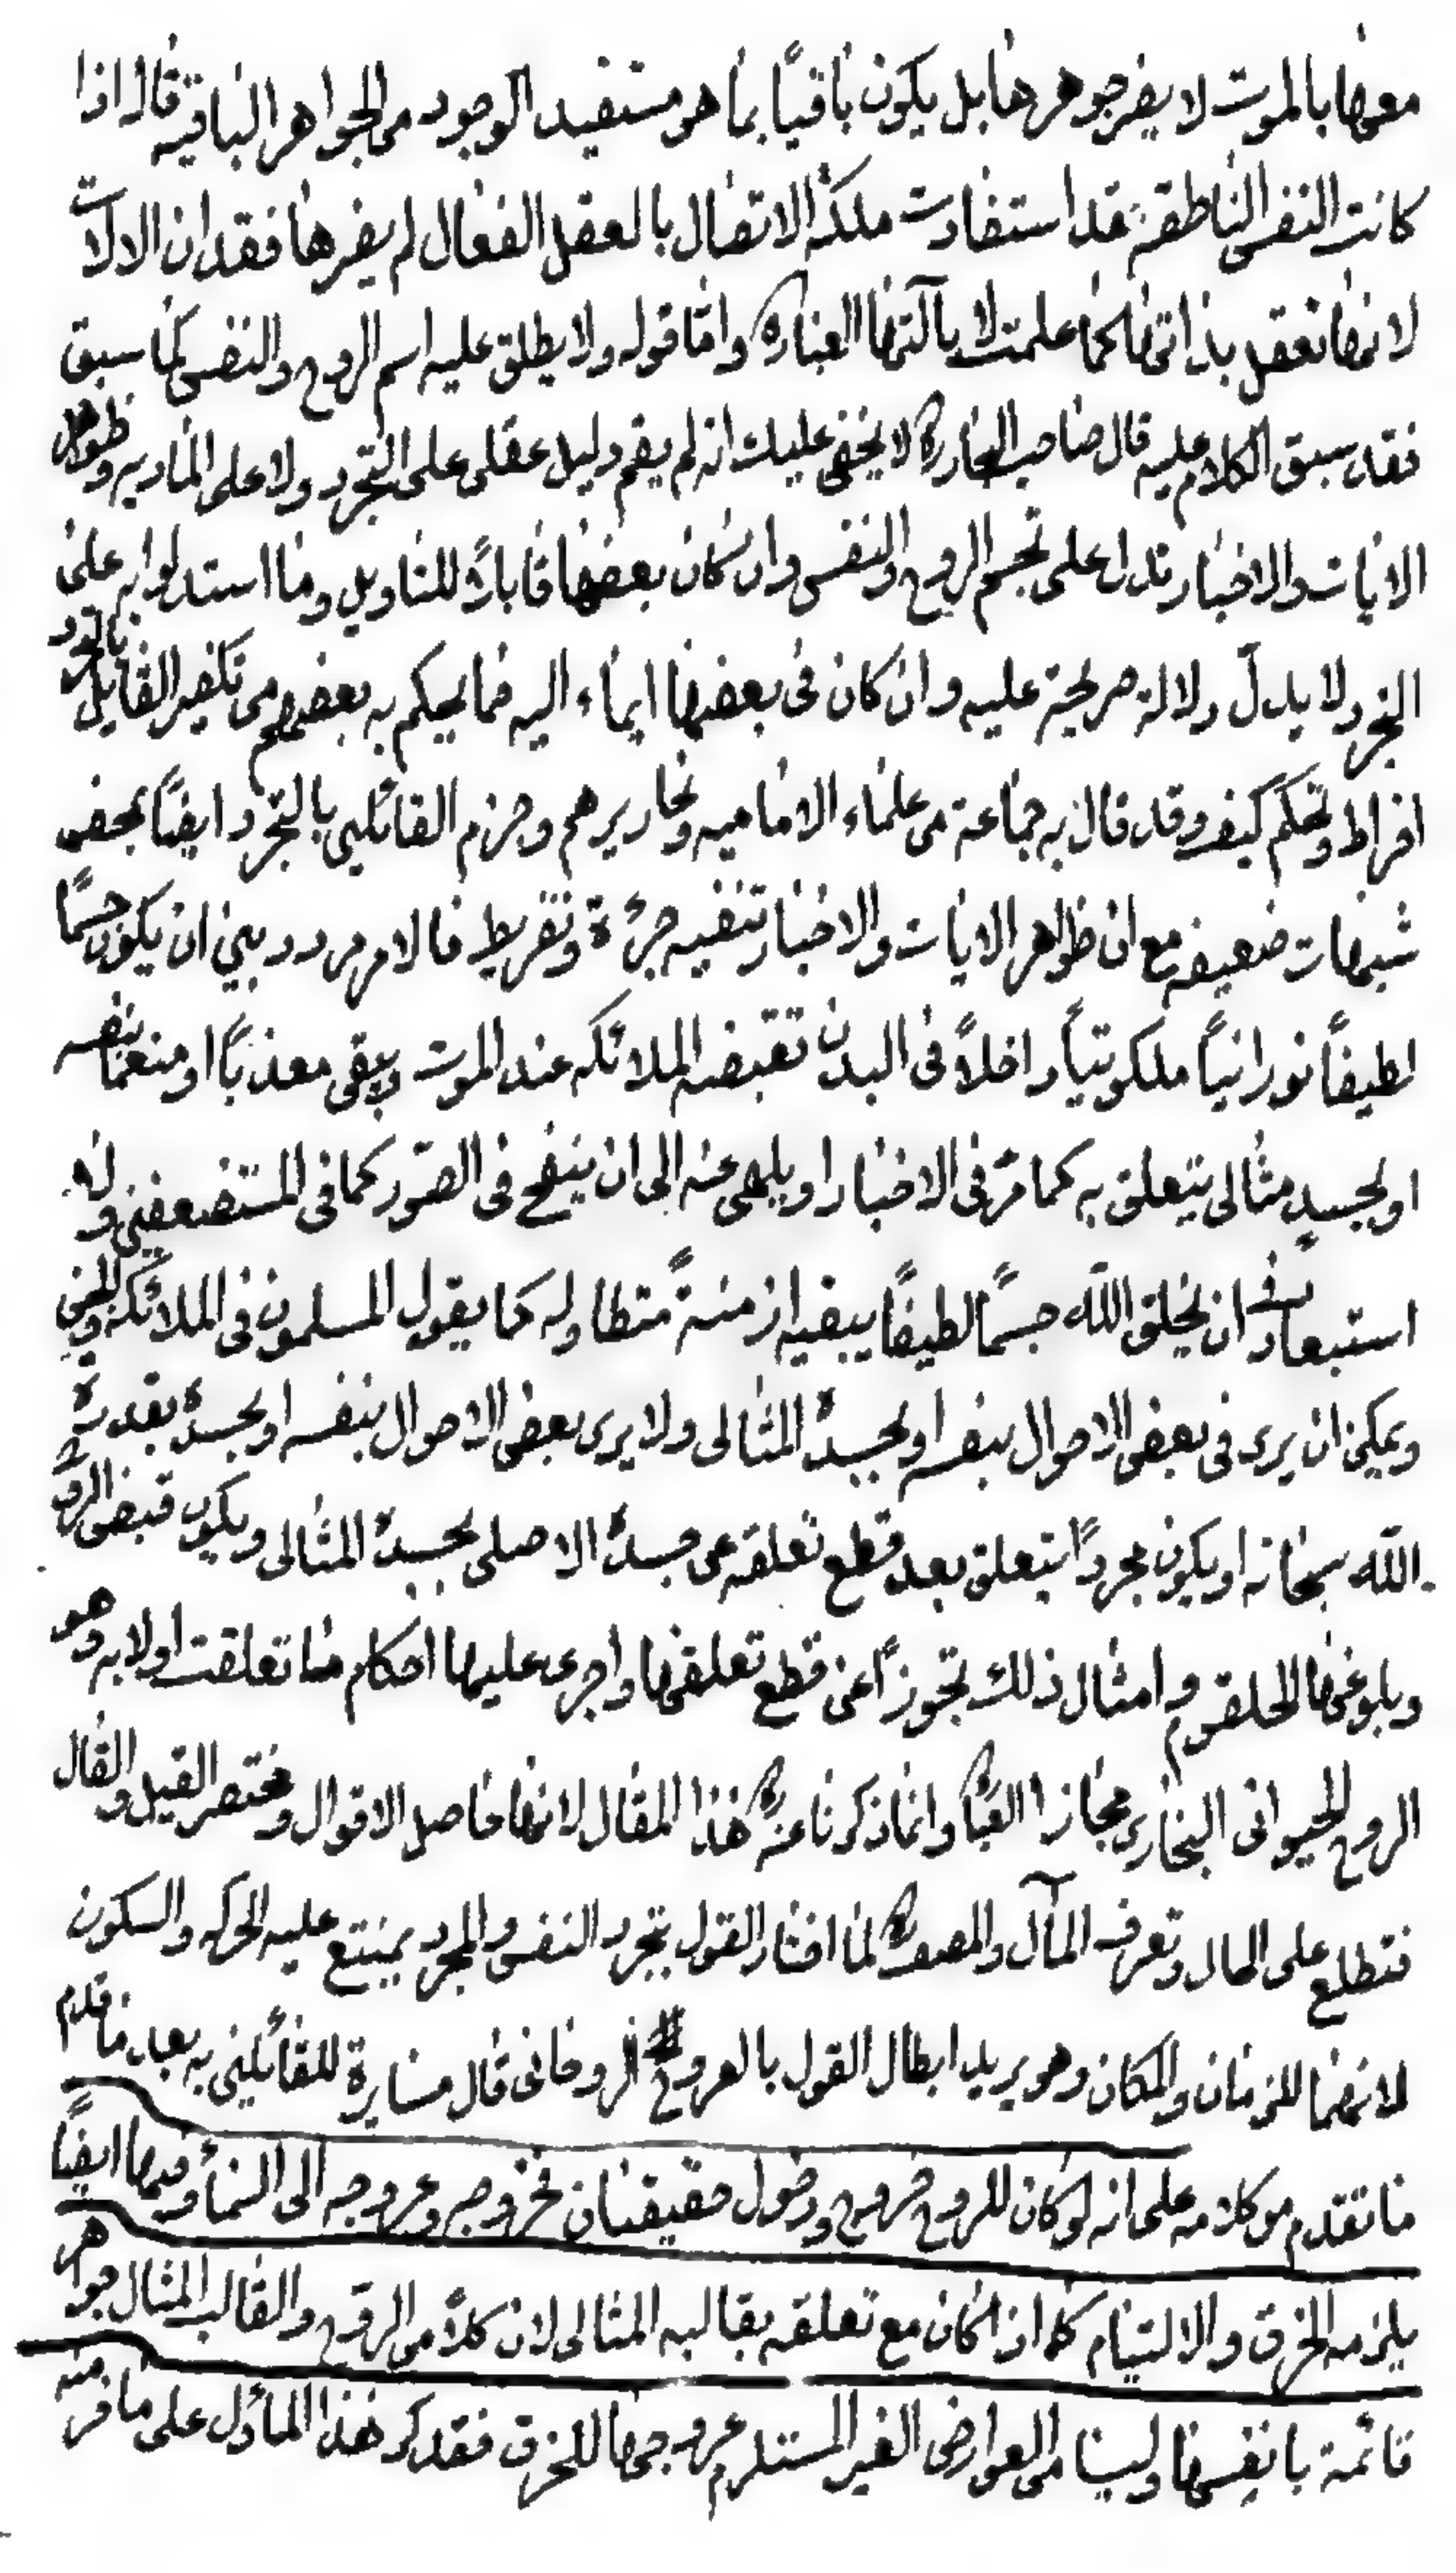 معها بالموت لا يضر جوهرها بل يكون باقياً بما هو مستفيد الوجود من الجواهر الباقيه قال اذا
كانت النفس الناطقه قد استفادت ملكة الاتصال بالعقل الفعال لم يضرها فقدان الالات
لانها تعقل بذاتها كما علمت لا بآلتها العبارة واما قوله ولا يطلق عليه اسم الروح والنفس كما سبق
فقد سبق الكلام عليه قال صاحب البحار ره لا يخفى عليك انه لم يقم دليل عقلي على التجرد ولا على الماديه وظواهر
الايات والاخبار تدل على تجسم الروح والنفس وان كان بعضها قابلاً للتاويل وما استدلوا به على
التجرد لا يدل دلالة صريحة عليه وان كان في بعضها ايماء اليه فما يحكم به بعضهم من تكفير القايل بالتجرد
افراط وتحكم كيف وقد قال به جماعة من علماء الاماميه ونحاريرهم وجزم القائلين بالتجرد ايضاً بمحض
شبهات ضعيفه مع ان ظواهر الايات والاخبار تنفيه جرئة وتفريط فالامر مردد بين ان يكون جسماً
لطيفاً نورانياً ملكوتياً داخلاً في البدن تقبضه الملائكه عند الموت ويبقى معذباً او منعماً بنفسه
او بجسد مثالي يتعلق به كما مر في الاخبار او يلهى عنه الى ان ينفخ في الصور كما في المستضعفين ولا
استبعاد في ان يخلق الله جسماً لطيفاً يبقيه ازمنةً متطاوله كما يقول المسلمون في الملائكه والجن
ويمكن ان يرى في بعض الاحوال بنفسه او بجسده المثالى ولا يرى بعض الاحوال بنفسه او بجسده بقدرة
الله سبحانه او يكون مجرداً يتعلق بعد قطع تعلقه عن جسده الاصلى بجسده المثالى ويكون قبض الروح
وبلوغها الحلقوم وامثال ذلك تجوزاً عن قطع تعلقها واجرى عليها احكام ما تعلقت اولا به وهو
الروح الحيوانى البخارى مجازا العبا وانما ذكرنا عنه ره هذا المقال لانها حاصل الاقوال ومختصر القيل والقال
فتطلع على الحال وتعرف المآل والمصنف ره لما اختار القول بتجرد النفس والمجرد يمتنع عليه الحركه والسكون
لانهما للزمان والمكان وهو يريد ابطال القول بالعروج الروحانى قال مسايرة للقائلين به بعد ما قدم
ما تقدم من كلامه على انه لو كان للروح خروج ودخول حقيقتان فخروجه وعروجه الى السماء وفيها ايضاً
يلزمه الخرق والالتيام كما اذا كان مع تعلقه بقالبه المثالى لان كلاً من الروح والقالب المثال جواهر
قائمة بانفسها وليسا من العوارض الغير المستلزم عروجها للخرق فقد كر هذا المأول على ما فر منه